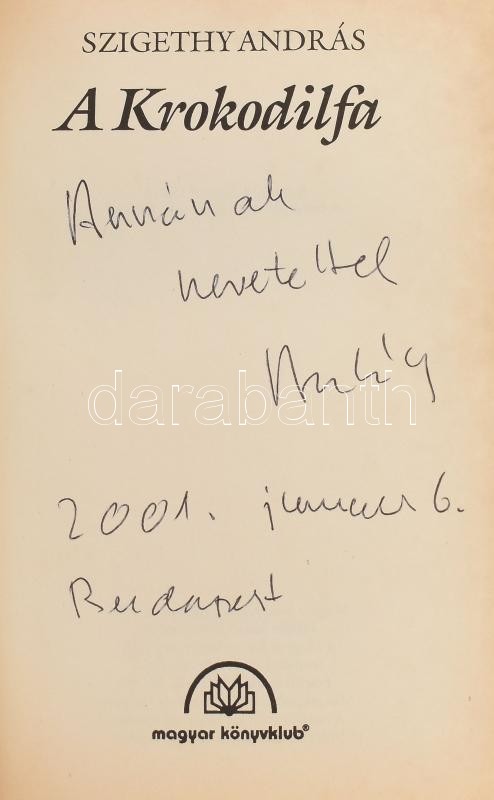 SZIGETHY ANDRÁS
A Krokodilfa
Annának
szeretettel
András
darabanth
2001. január 6.
Budapest
magyar könyvklub®